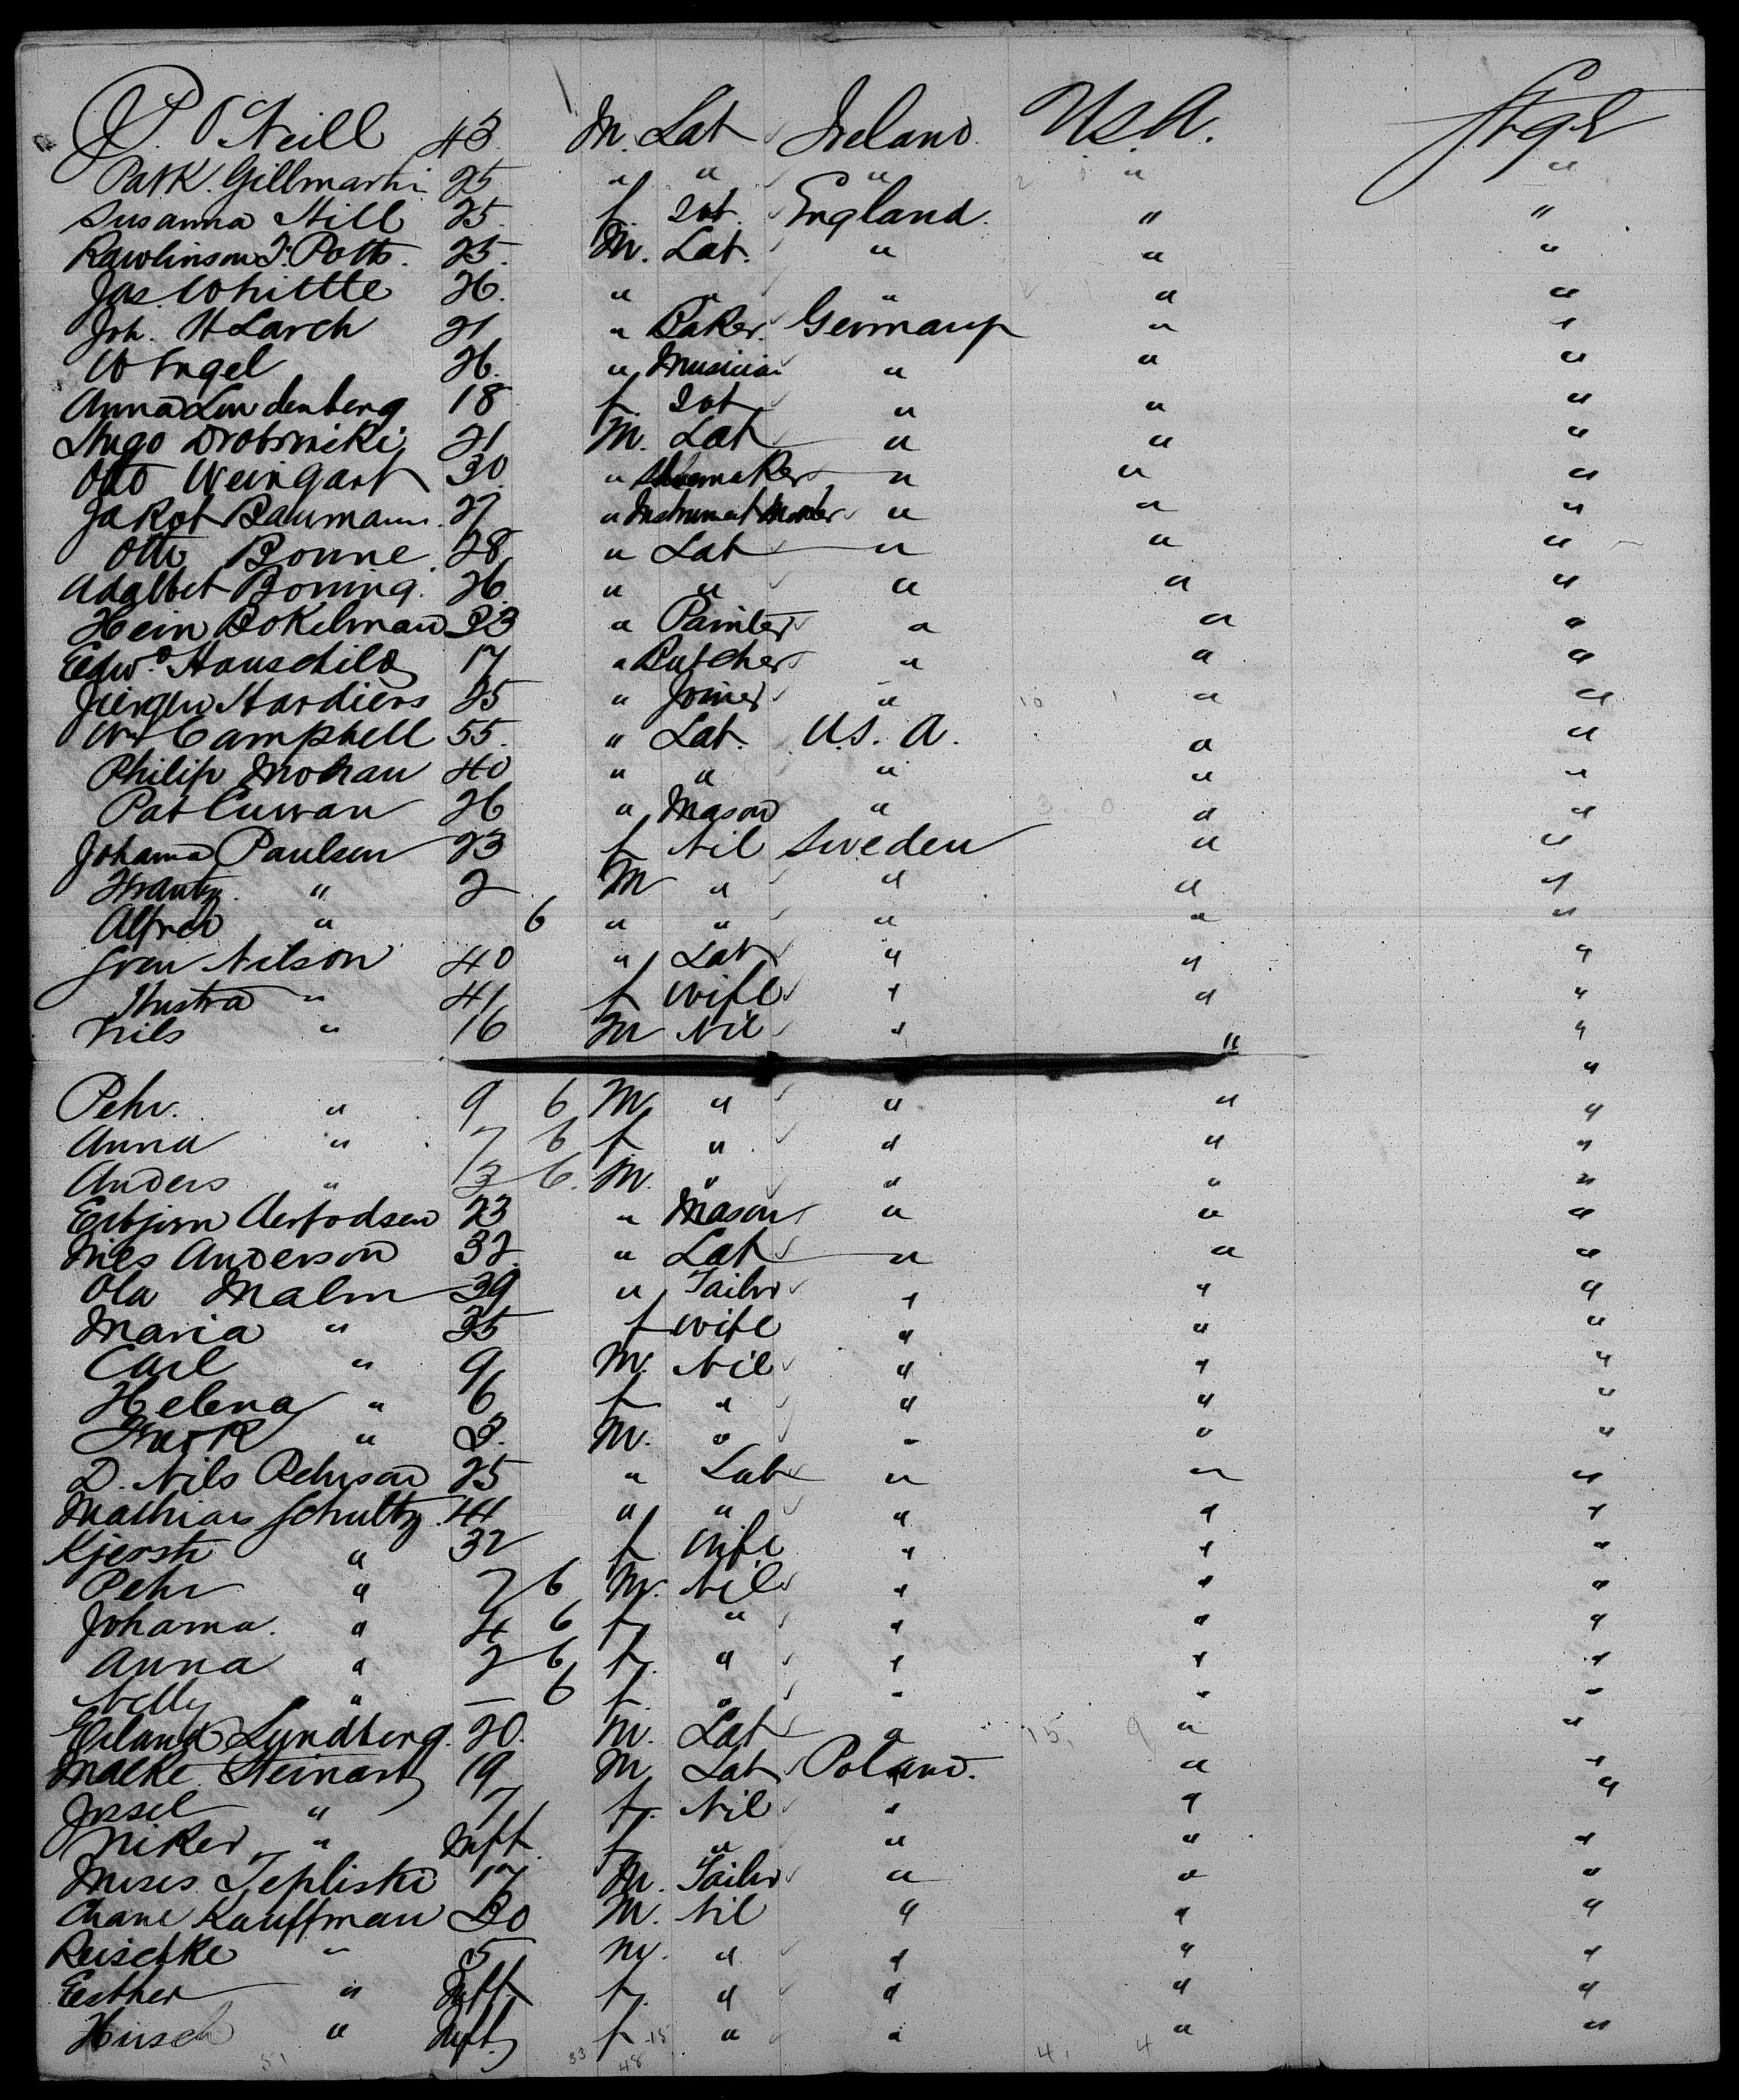 P. O'Neill 43 M. Lab Ireland. U.S.A. Stge
Patk. Gillmartin 25 " " " " "
Susanna Hill 25. f. Svt. England. " "
Rawlinson T. Potts. 25. M. Lab. " " "
Jas. Whittle 26. " " " " "
Joh. H Larch 21 " Baker. Germany " "
W Engel 26. " Musician " " "
Anna Lindenberg 18 f. Svt " " "
Hugo Drobsniki 21 M. Lab " " "
Otto Weingart 30. " Shoemaker " " "
Jakob Baumann. 27 " Instrumat Maker " " "
Otto Bonne. 28. " Lab " " "
Adalbet Boning. 26. " " " " "
Hein Bokelman 33 " Painter " " "
Edwd. Hauschild 17 " Butcher " " "
Jurgen Hardiers 25 " Joiner " " "
Wm Campbell 55. " Lab. U.S.A. " "
Philip Mohan 40 " " " " "
Pat Curran 26 " Mason " " "
Johanna Paulsen 23 f Nil Sweden " "
Frantz. " 2 M " " " "
Alfred " 6 " " " " "
Sven Nilson 40 " Lab " " "
" 41 f wife " " "
Nils " 16 M Nil " " "
"
Pehr. " 9 6 M " " " "
Anna " 7 6 f " " " "
Anders " 3 6. M. " " " "
23 " Mason " " "
Nils Anderson 32. " Lab " " "
Ola Malm 39 " Tailor " " "
Maria " 35 f wife " " "
Carl " 9 M. Nil " " "
Helena " 6 f " " " "
" 3. M. " " " "
D. Nils Pehrson 25 " Lab " " "
Mathias Schultz. 44 " " " " "
Kjersti " 32 f wife " " "
Pehr " 7 6 M. Nil " " "
Johanna. " 4 6 f " " " "
Anna " 2 6 f. " " " "
Nelly " — 6 f. " " " "
Lundberg. 20. M. Lab " " "
Malke Steinart 19 M Lab Poland. " "
" 7 f. Nil " " "
" Inft. f " " " "
Moses Tepliski 17 M. Tailor " " "
Chane Kauffman 30 M. Nil " " "
Reischke " 5 M. " " " "
Esther " Inft. f. " " " "
Hirsch " Inft. f " " " "
51 33 48 15 4 4